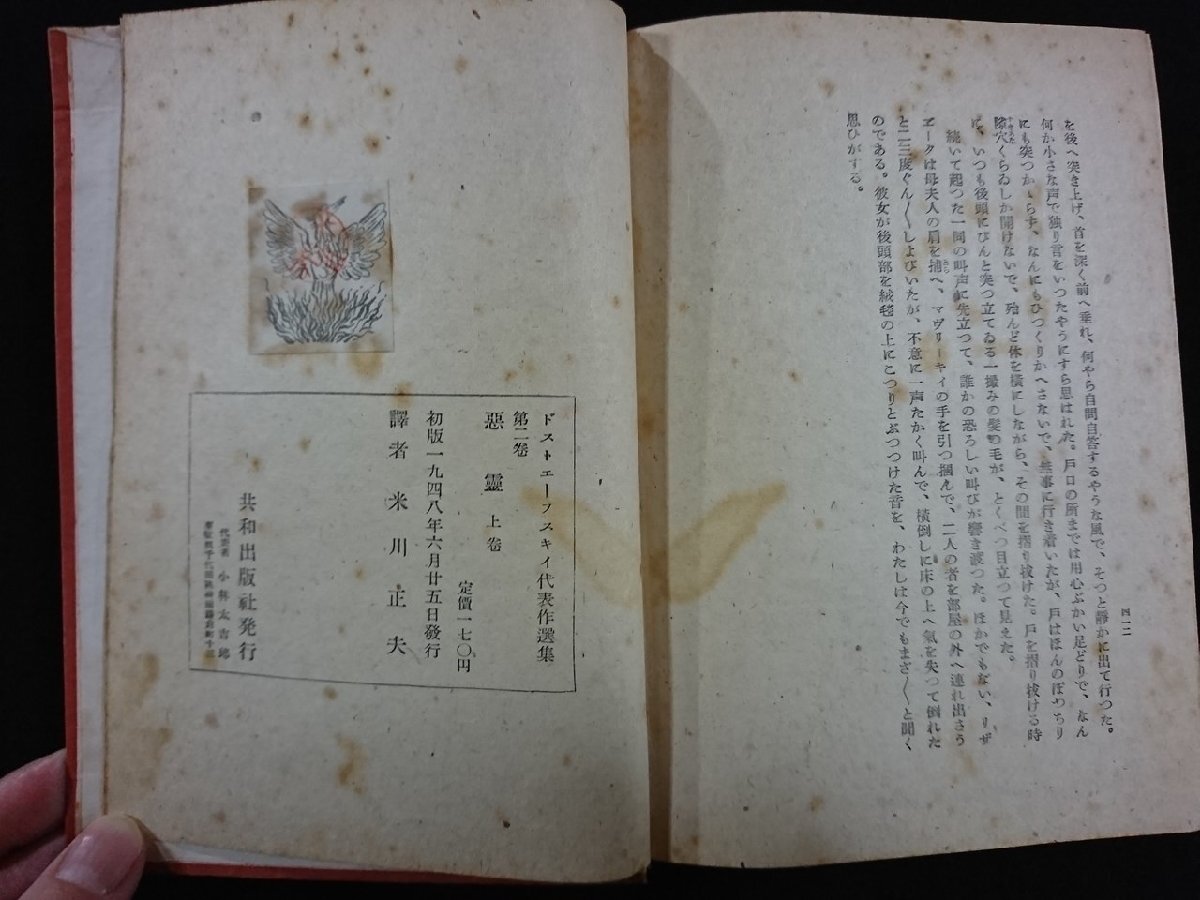 を後へ突き上げ、首を深く前へ垂れ、何やら自問自答するやうな風で、そつと静かに出て行つた。
何か小さな声で独り言をいつたやうにすら思はれた。戸口の所までは用心ぶかい足どりで、なん
にも突つかゝらず、なんにもひつくりかへさないで、無事に行き着いたが、戸はほんのぽつちり
隙穴くらゐしか開けないで、殆んど体を横にしながら、その間を摺り抜けた。戸を摺り抜ける時
に、いつも後頭にぴんと突つ立てゐる一撮みの髪の毛が、とくべつ目立つて見えた。
続いて起つた一同の叫声に先立つて、誰かの恐ろしい叫びが響き渡つた。ほかでもない、リザ
ヹータは母夫人の肩を捕へ、マヴリーキイの手を引つ掴んで、二人の者を部屋の外へ連れ出さう
と二三度ぐん〳〵しよびいたが、不意に一声たかく叫んで、横倒しに床の上へ氣を失つて倒れた
のである。彼女が後頭部を絨毯の上にこつりとぶつつけた音を、わたしは今でもまざ〳〵と聞く
思ひがする。
四一二
ドストエーフスキイ代表作選集
第二卷
惡靈 上卷
定價一七〇円
初版一九四八年六月廿五日發行
譯者 米川正夫
共和出版社発行
代表者 小林太吉